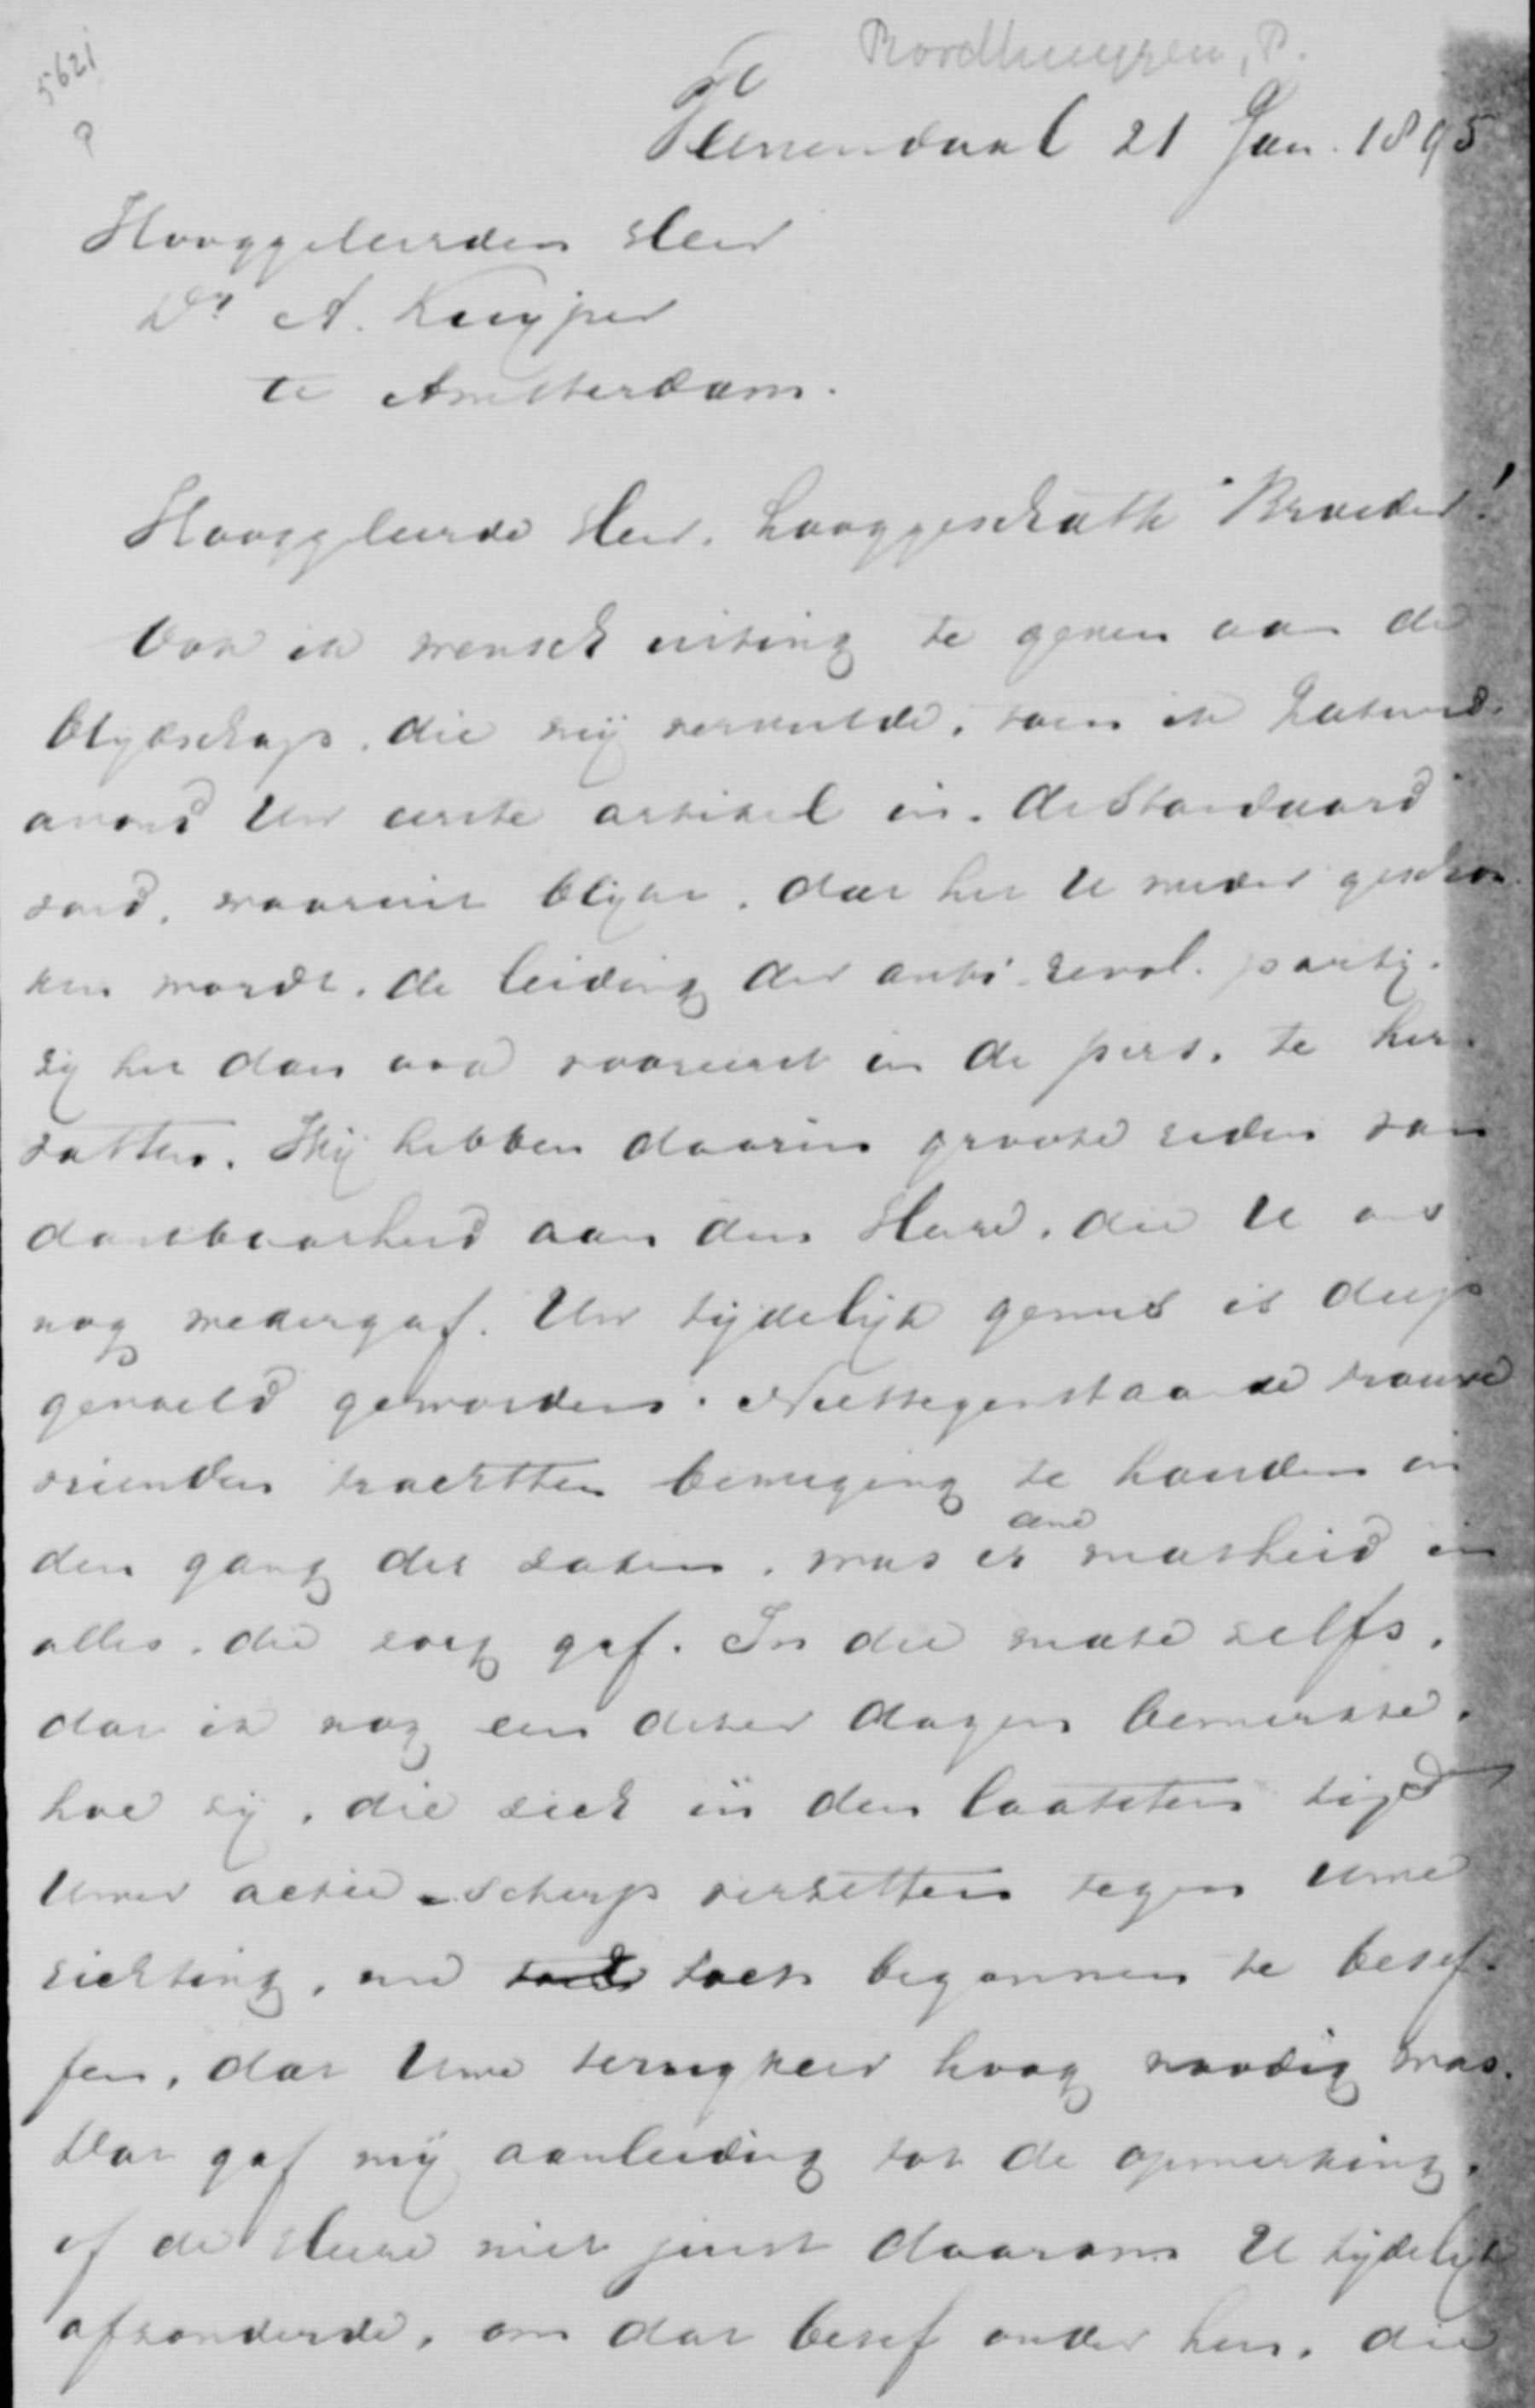 5621
P
Noordhuyzen, P.
Veenendaal 21 Jan. 1895
Hooggeleerden Heer
Dr A. Kuyper
te Amsterdam.
Hooggeleerde Heer, hooggeschatte Broeder!
Ook ik wensch uiting te geven aan de
blijdschap, die mij vervulde, toen ik Zaturd.
avond Uw eerste artikel in "de Standaard"
vond, waaruit blijkt, dat het U weder geschon-
ken wordt, de leiding der anti-revol. partij,
zij het dan ook vooreerst in de pers, te her-
vatten. Wij hebben daarin groote reden van
dankbaarheid aan den Heere, die U ons
nog wedergaf. Uw tijdelijk gemis is diep
gevoeld geworden. Niettegenstaande trouwe
vrienden trachtten beweging te houden in
den gang der zaken, was er eene matheid in
alles, die zorg gaf. In die mate zelfs,
dat ik nog een dezer dagen bemerkte,
hoe zij, die zich in den laatsten tijd
Uwer actie scherp verzetten tegen Uwe
richting, nu toch toch begonnen te besef-
fen, dat Uwe terugkeer hoog noodig was.
Dat gaf mij aanleiding tot de opmerking,
of de Heere niet juist daarom U tijdelijk
afzonderde, om dat besef onder hen, die